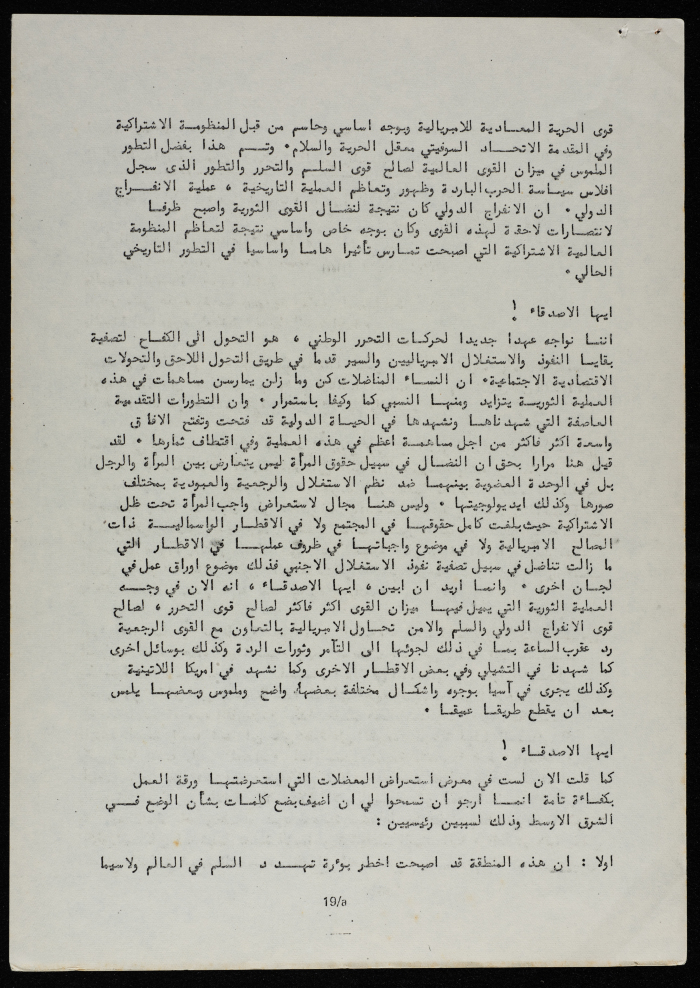 قوى الحرية المعادية للامبريالية وبوجه اساسي وحاسم من قبل المنظومة الاشتراكية
وفي المقدمة الاتحاد السوفيتي معقل الحرية والسلام. وتم هذا بفضل التطور
الملموس في ميزان القوى العالمية لصالح قوى السلم والتحرر والتطور الذى سجل
افلاس سياسة الحرب الباردة وظهور وتعاظم العملية التاريخية ، عملية الانفراج
الدولي. ان الانفراج الدولي كان نتيجة لنضال القوى الثورية واصبح ظرفا
لانتصارات لاحقة لهذه القوى وكان بوجه خاص واساسي نتيجة لتعاظم المنظومة
العالمية الاشتراكية التي اصبحت تمارس تأثيرا هاما واساسيا في التطور التاريخي
الحالي.
ايها الاصدقاء !
اننا نواجه عهدا جديدا لحركات التحرر الوطني ، هو التحول الى الكفاح لتصفية
بقايا النفوذ والاستغلال الامبرياليين والسير قدما في طريق التحول اللاحق والتحولات
الاقتصادية الاجتماعية. ان النساء المناضلات كن وما زلن يمارسن مساهمات في هذه
العملية الثورية يتزايد ومنها النسبي كما وكيفا باستمرار. وان التطورات التقدمية
العاصفة التي شهدناها ونشهدها في الحياة الدولية قد فتحت وتفتح الافاق
واسعة اكثر فاكثر من اجل مساهمة اعظم في هذه العملية وفي اقتطاف ثمارها. لقد
قيل هنا مرارا بحق ان النضال في سبيل حقوق المرأة ليس يتعارض بين المرأة والرجل
بل في الوحدة العضوية بينهما ضد نظم الاستغلال والرجعية والعبودية بمختلف
صورها وكذلك ايديولوجيتها. وليس هنا مجال لاستعراض واجب المرأة تحت ظل
الاشتراكية حيث بلغت كامل حقوقها في المجتمع ولا في الاقطار الراسمالية ذات
المصالح الامبريالية ولا في موضوع واجباتها في ظروف عملها في الاقطار التي
ما زالت تناضل في سبيل تصفية نفوذ الاستغلال الاجنبي فذلك موضوع اوراق عمل في
لجان اخرى. وانما اريد ان ابين ، ايها الاصدقاء ، انه الان في وجه
العملية الثورية التي يميل فيها ميزان القوى اكثر فاكثر لصالح قوى التحرر ، لصالح
قوى الانفراج الدولي والسلم والامن تحاول الامبريالية بالتعاون مع القوى الرجعية
رد عقرب الساعة بما في ذلك لجوئها الى التآمر وثورات الردة وكذلك بوسائل اخرى
كما شهدنا في التشيلي وفي بعض الاقطار الاخرى وكما نشهد في امريكا اللاتينية
وكذلك يجرى في آسيا بوجوه واشكال مختلفة بعضها واضح وملموس وبعضها يلمس
بعد ان يقطع طريقا عميقا.
ايها الاصدقاء !
كما قلت الان لست في معرض استعراض المعضلات التي استعرضتها ورقة العمل
بكفاءة تامة انما ارجو ان تسمحوا لي ان اضيف بضع كلمات بشأن الوضع في
الشرق الاوسط وذلك لسببين رئيسيين :
اولا : ان هذه المنطقة قد اصبحت اخطر بؤرة تهدد السلم في العالم ولاسيما
19/a